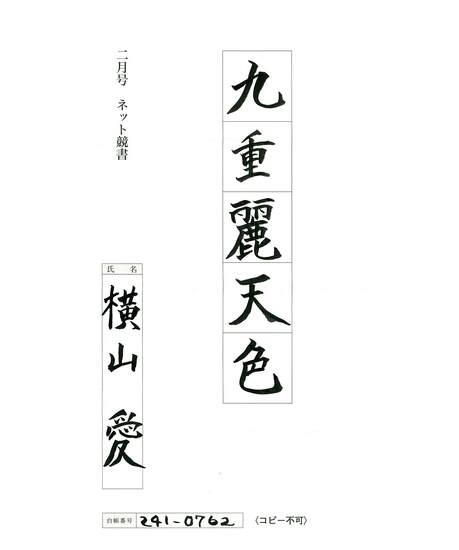 九重麗天色
二月号 ネット競書
氏名
横山 愛
台帳番号 241-0762
〈コピー不可〉